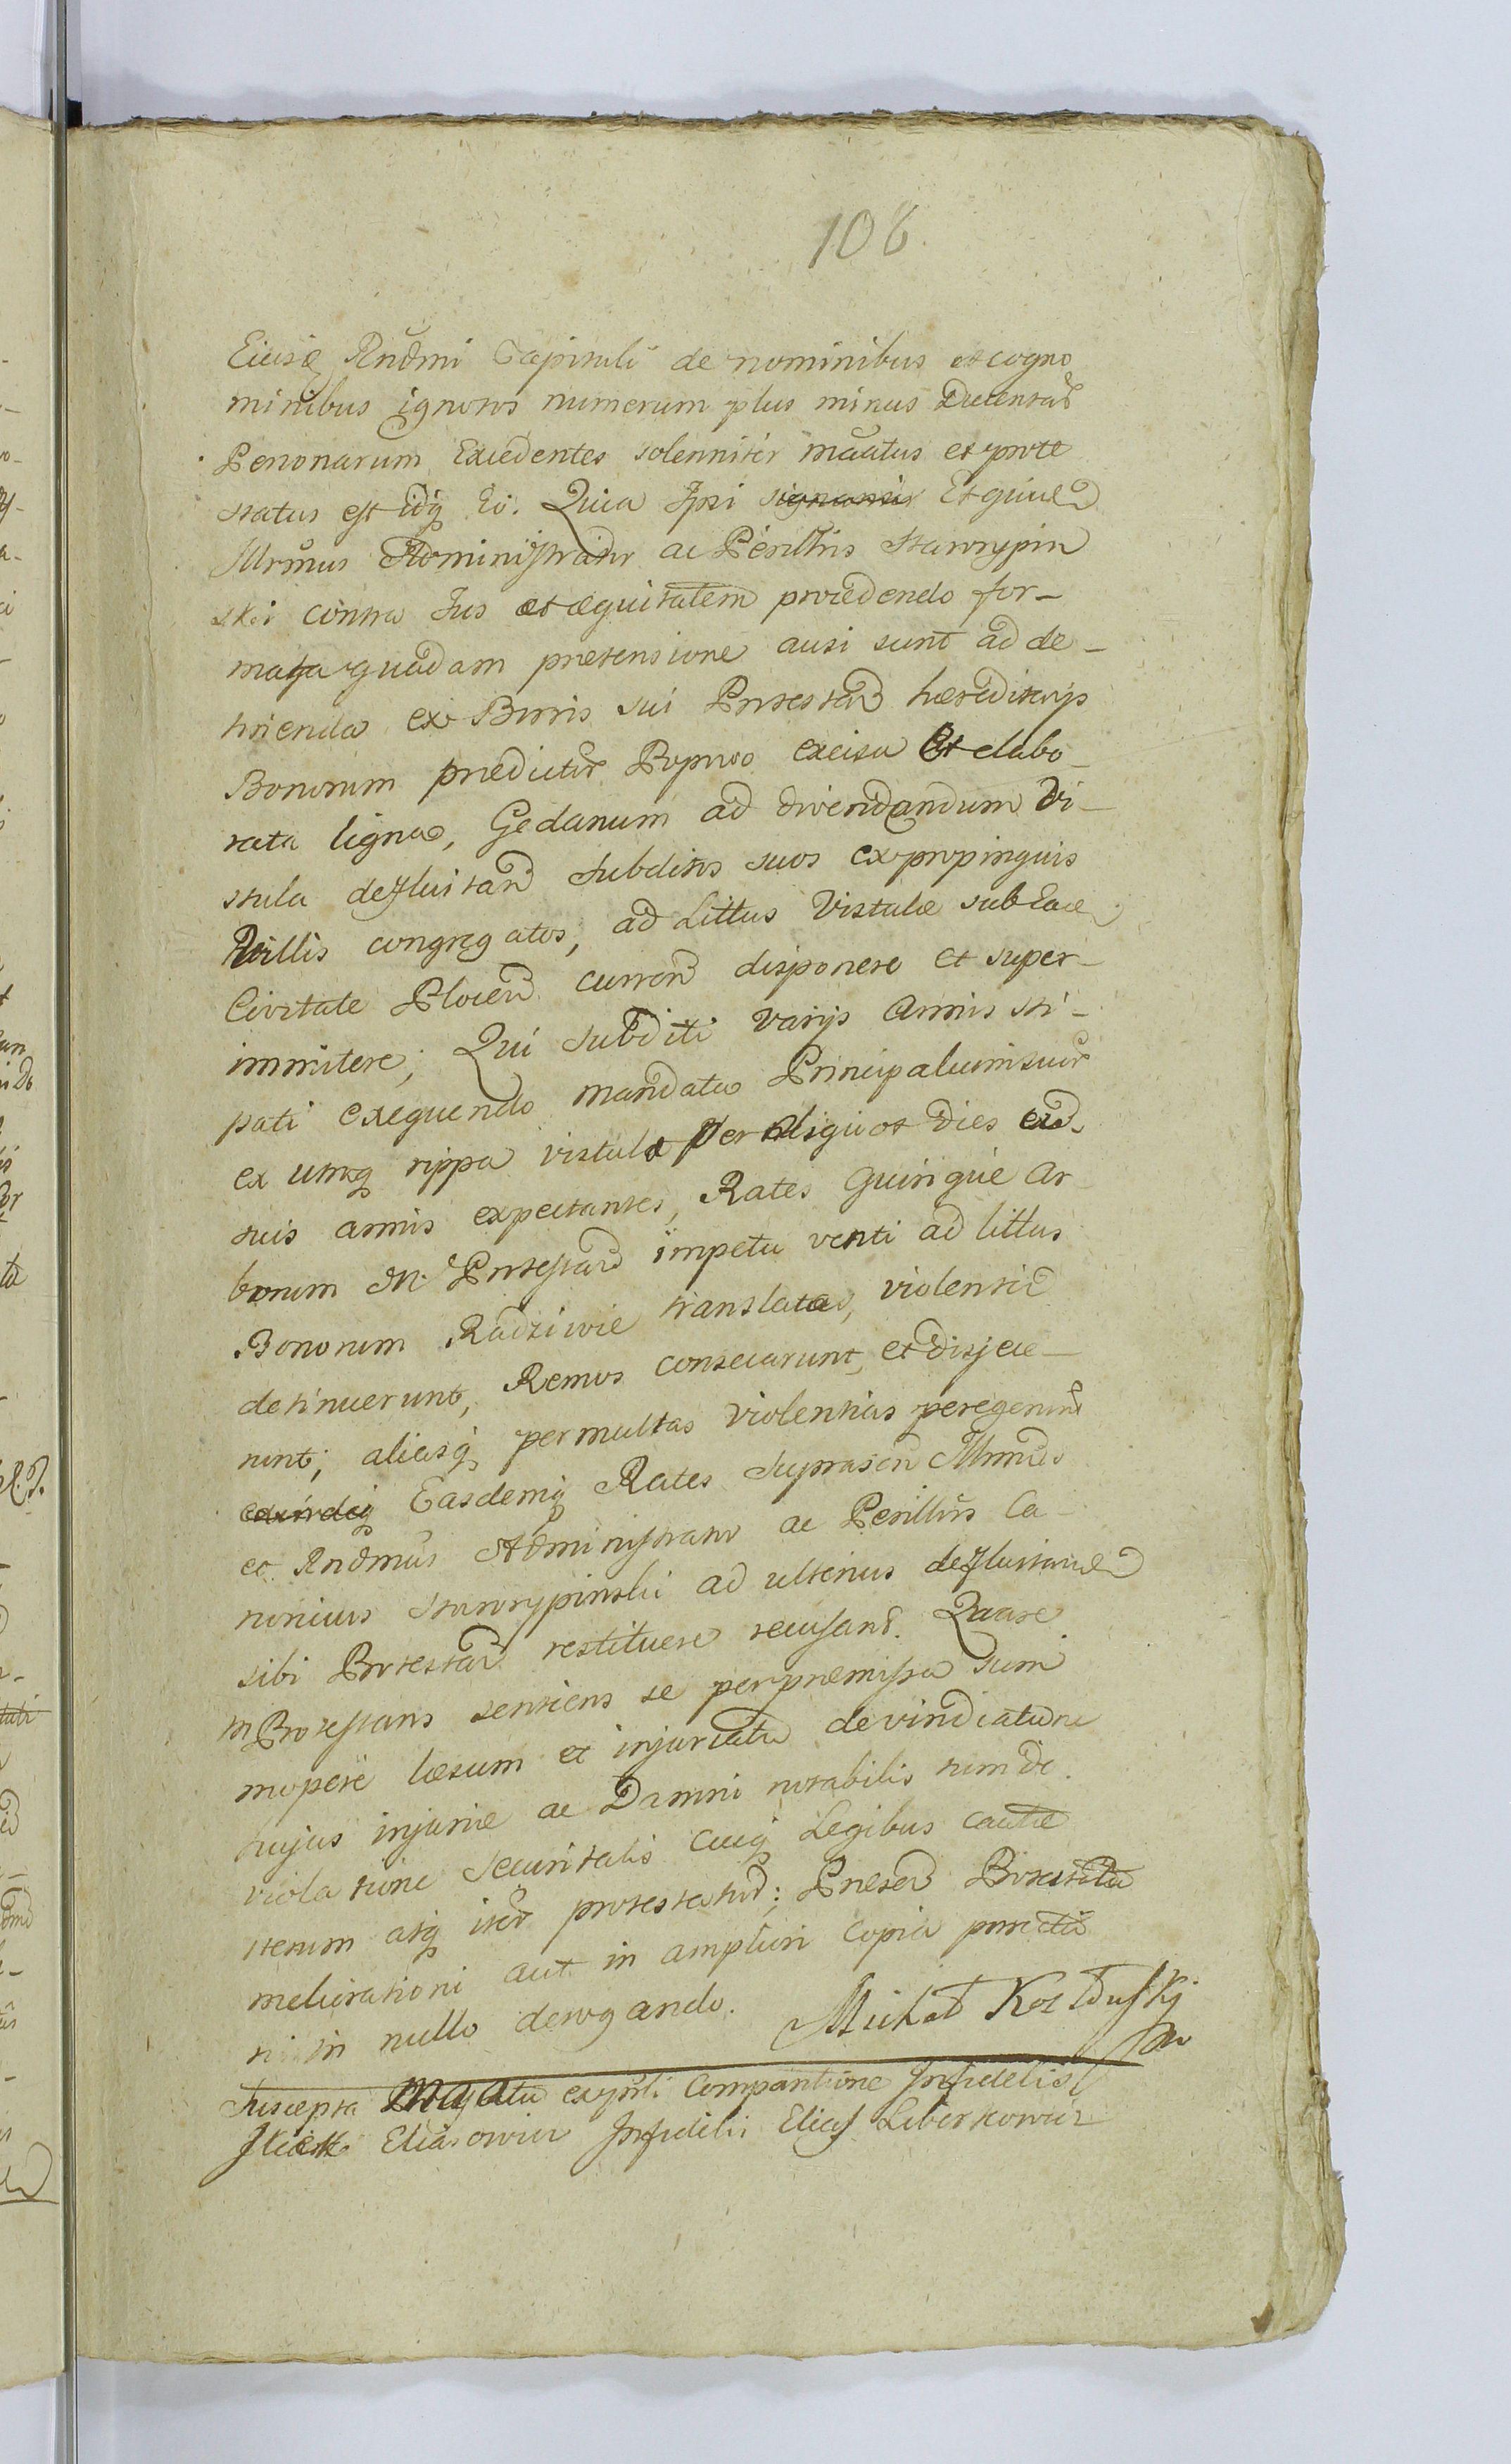 106.
Eiusq Rndmi Capituli de nominibus et cogno
minibus ignotos numerum plus minus Ducentar
Personarum Excedentes solenniter mãatus et prote
status est idq Eo. Quia Ipsi signanter Et quived
Illrmus Administrator ac Perillris Starorypin
ski contra Jus et æquitatem procedendo for-
mata quadam pretensione ausi sunt ad de-
trienda ex Borris sui Protestan hæreditarijs
Bonorum predictor Popowo excisa Et elabo-
rata ligna, Gedanum ad divendandum Vi-
stula defluitand Subditos suos ex propinquis
Villis congregatos, ad Littus Vistulæ sub Eace
Civitate Plocen currend disponere et super-
immitere; Qui Subditi varijs Armis sti-
pati exequendo mandata Principalium suor
ex utraq rippa vistulæ per aliquot dies eud.
suis armis expectantes, Rates quinque Ar
borum M. Protestand impetu venti ad littus
Bonorum Radziwie translatas, violenter
detinuerunt, Remos consecarunt, et disjece-
runt; aliasq permultas violentias peregerunt
exindeq Easdemq Rates Suprascri Illrmus
et Rndmus Administrator ac Perillris Ca-
nonicus Starorypinski ad ulterius defluitand
sibi Protestan restituere recusant. Quare
M Protestans sentiens se per premissa sum
mopere læsum et injuriatu de vindicatione
hujus injuriæ ac Damni notabilis tum de
violatione securitatis cuiq Legibus cautæ
iterum atq iter protestatur; Presen Protestatio
meliorationi aut in ampliori copia porrectio
ni in nullo derogando. Michał Kozłduski
mp
Suscepta ex prli Comparitione Infidelis
Eliasowicz Infidelis Elias Liberkowicz